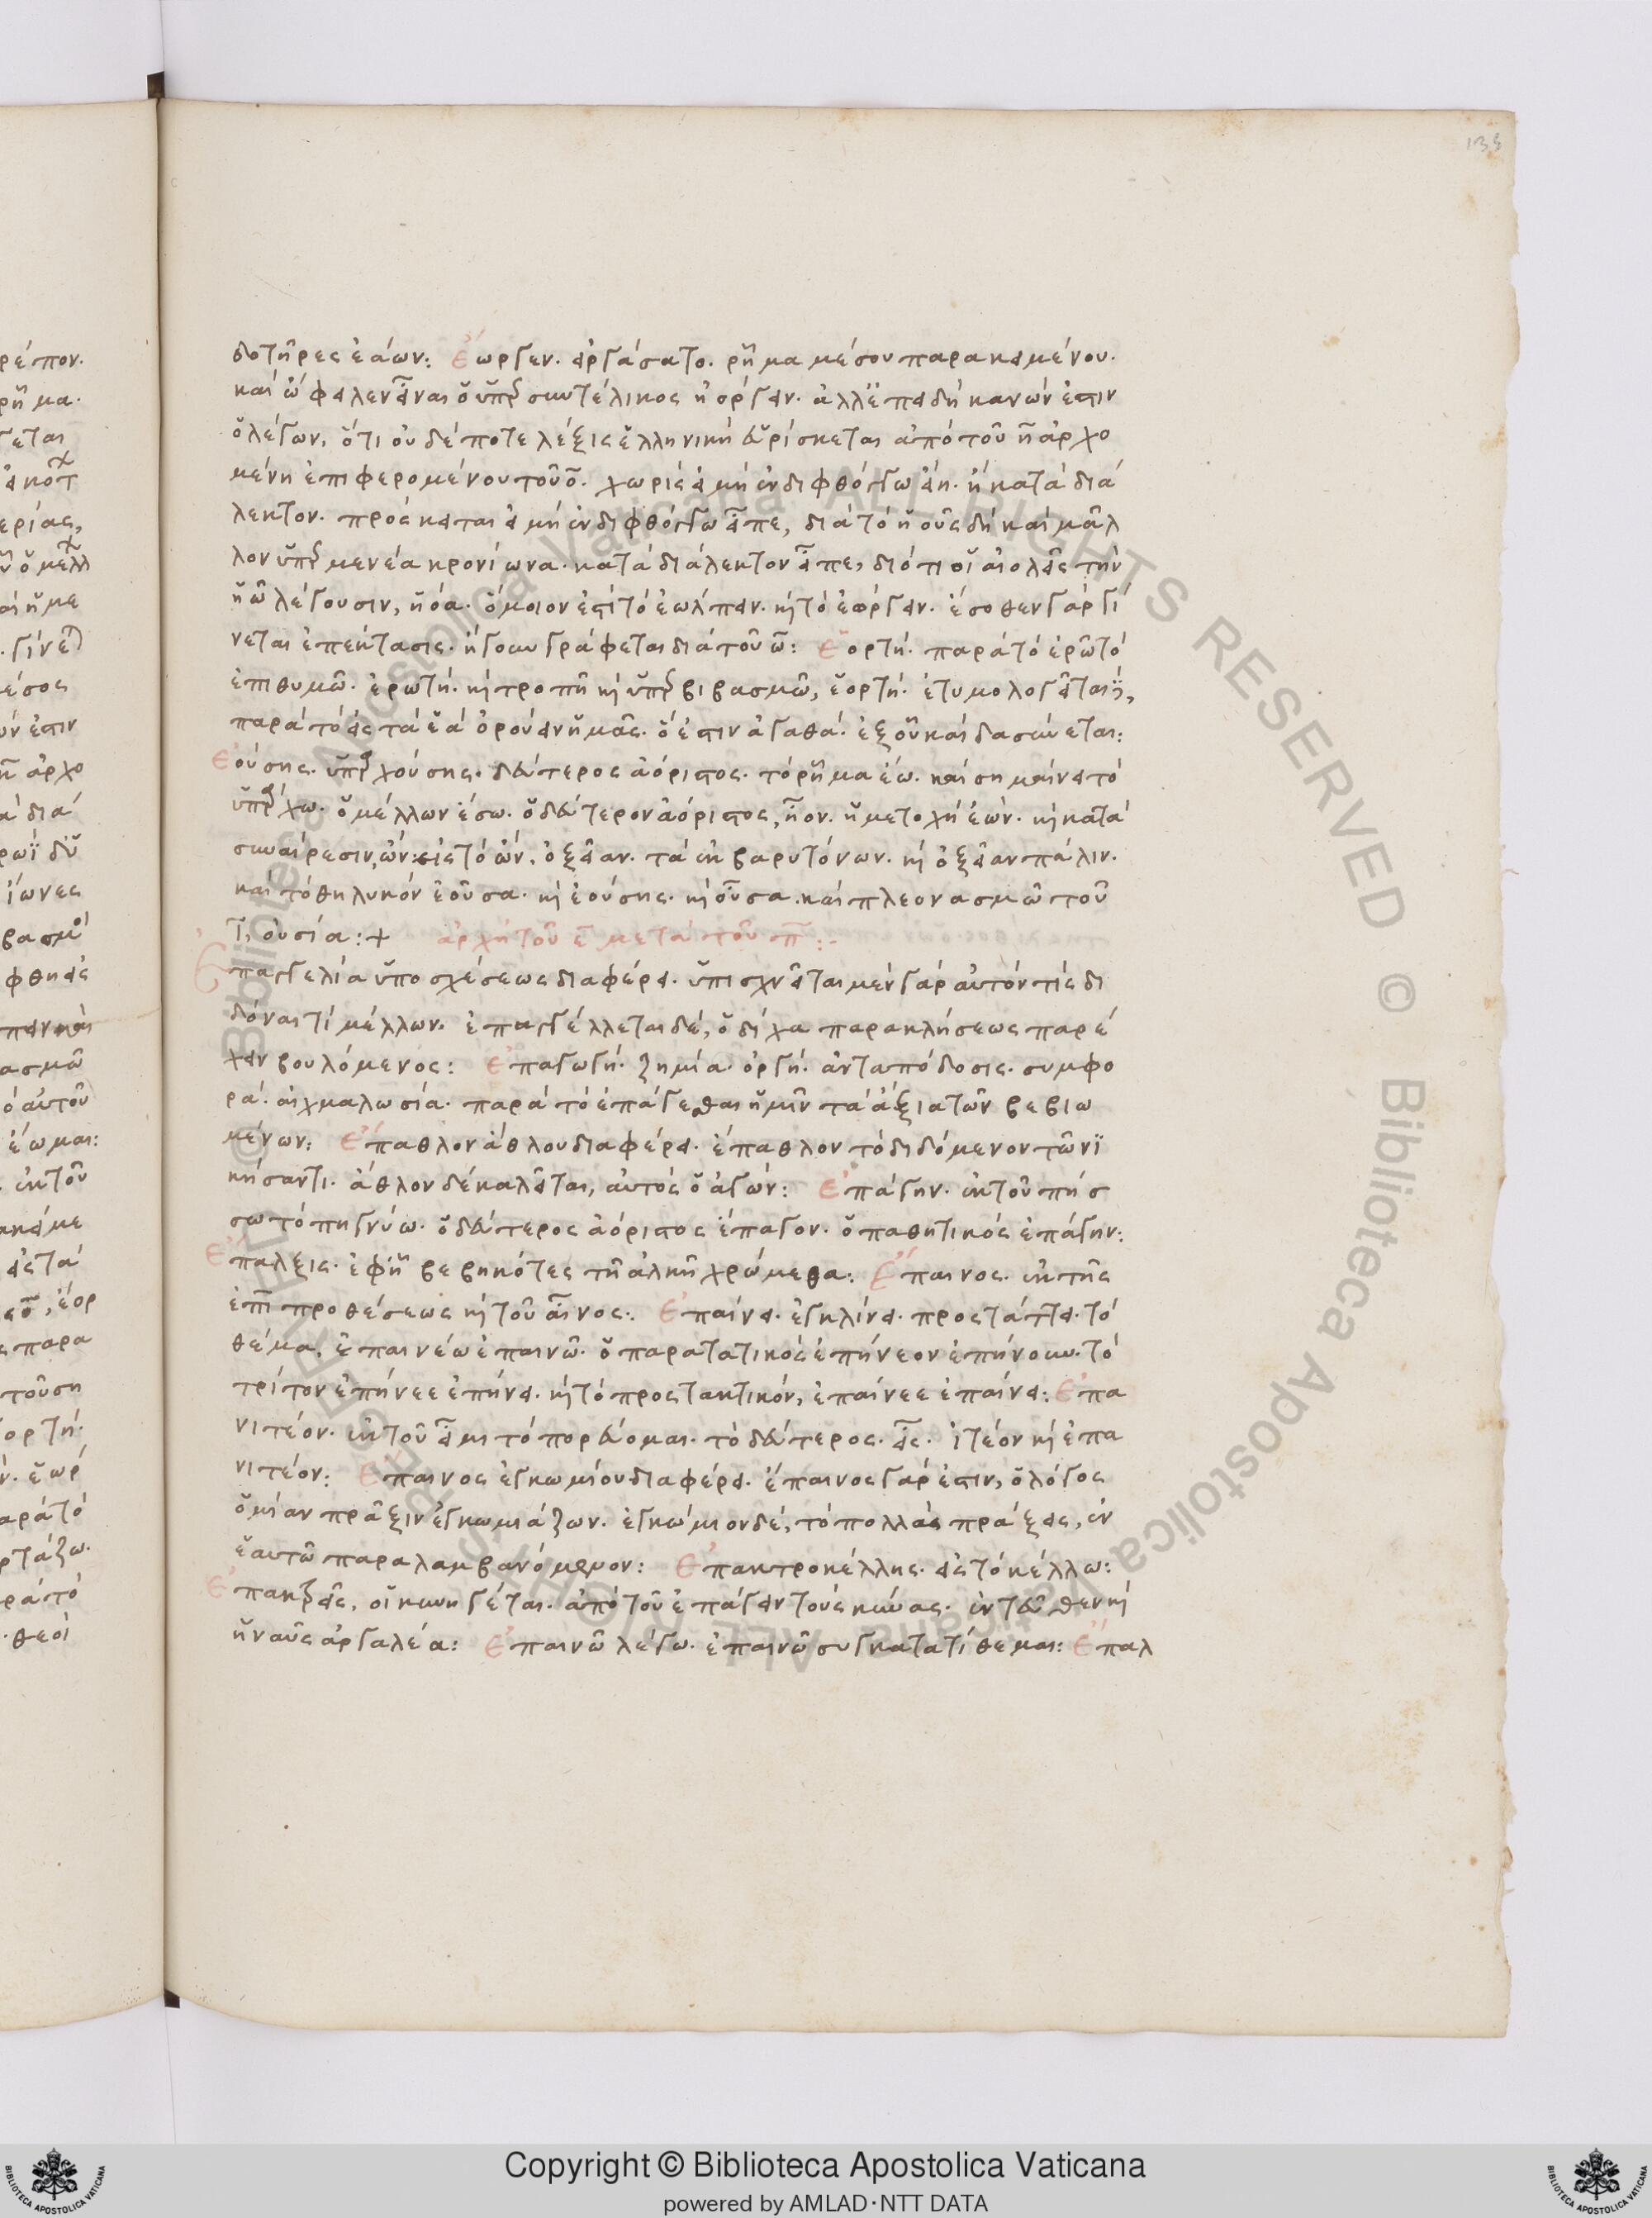 135
δοτῆρες ἐάων: Ἐώργεν. εἰργάσατο. ῥῆμα μέσου παρακειμένου.
καὶ ὤφειλεν εἶναι ὁ ὑπερσυντέλικος ἠόργειν. ἀλλ' ἐπειδὴ κανών ἐστιν
ὁ λέγων, ὅτι οὐδέποτε λέξις ἑλληνικὴ εὑρίσκεται ἀπὸ τοῦ η ἀρχο
μένη ἐπιφερομένου τοῦ ο. χωρὶς εἰ μὴ ἐν διφθόγγω εἴη. ἢ κατὰ διά
λεκτον. πρόσκειται εἰ μὴ ἐν διφθόγγω εἶπε, διὰ τὸ ἠοῦς δὴ καὶ μᾶλ
λον ὑπερμενέα κρονίωνα. κατὰ διάλεκτον εἶπε, διότι οἱ αἰολεῖς τὴν
ἠῶ λέγουσιν, ἠόα. ὅμοιον ἐστὶ τὸ ἐώλπειν. καὶ τὸ ἐώργειν. ἔσοθεν γὰρ γί
νεται ἐπέκτασις. ἤγουν γράφεται διὰ τοῦ ω: Ἑορτή. παρὰ τὸ ἐρῶ τὸ
ἐπιθυμῶ. ἐρωτή. καὶ τροπῆ καὶ ὑπερβιβασμῶ, ἑορτή. ἐτυμολογεῖται
παρὰ τὸ εἰς τὰ ἐὰ ὀρούειν ἡμᾶς. ὅ ἐστιν ἀγαθά. ἐξ οὗ καὶ δασύνεται:
Ἐούσης. ὑπαρχούσης. δεύτερος ἀόριστος. τὸ ῥῆμα ἔω. καὶ σημαίνει τὸ
ὑπάρχω. ὁ μέλλων ἔσω. ὁ δεύτερον ἀόριστος, ἦον. ἡ μετοχὴ ἐών. καὶ κατὰ
συναίρεσιν, ὤν: εἰς τὸ ὤν. ὀξεῖαν. τὰ ἐκ βαρυτόνων. καὶ ὀξεῖαν πάλιν.
καὶ τὸ θηλυκὸν ἐοῦσα. καὶ ἐούσης. καὶ οὖσα. καὶ πλεονασμῶ τοῦ
ι, οὐσία: + ἀρχὴ τοῦ ε μετὰ τοῦ π:-
Ἐπαγγελία ὑποσχέσεως διαφέρει. ὑπισχνεῖται μὲν γὰρ αὐτόν τις δι
δόναι τὶ μέλλων. ἐπαγγέλλεται δέ, ὁ δίχα παρακλήσεως παρέ
χειν βουλόμενος: Ἐπαγωγή. ζημία. ὀργή. ἀνταπόδοσις. συμφο
ρά. αἰχμαλωσία. παρὰ τὸ ἐπάγεσθαι ἡμῖν τὰ ἄξια τῶν βεβιω
μένων: Ἔπαθλον ἄθλου διαφέρει. ἔπαθλον τὸ διδόμενον τῶ νι
κήσαντι. ἄθλον δὲ καλεῖται, αὐτὸς ὁ ἀγών: Ἐπάγην. ἐκ τοῦ πήσ
σω τὸ πηγνύω. ὁ δεύτερος ἀόριστος ἔπαγον. ὁ παθητικός ἐπάγην:
Ἔπαλξις. ἐφ' ἧ βεβηκότες τῆ ἀλκῆ χρώμεθα: Ἔπαινος. ἐκ τῆς
ἐπὶ προθέσεως καὶ τοῦ αἶνος: Ἐπαίνει. ἐγκλίνει. προστάττει. τὸ
θέμα, ἐπαινέω ἐπαινῶ. ὁ παρατατικός ἐπήνεον ἐπήνουν. τὸ
τρίτον ἐπήνεε ἐπήνει. καὶ τὸ προστακτικόν, ἐπαίνεε ἐπαίνει: Ἐπα
νιτέον. ἐκ τοῦ εἶμι τὸ πορεύομαι. τὸ δεύτερος. εἶς. ἰτέον καὶ ἐπα
νιτέον: Ἔπαινος ἐγκωμίου διαφέρει. ἔπαινος γάρ ἐστιν, ὁ λόγος
ὁ μίαν πρᾶξιν ἐγκωμιάζων. ἐγκώμιον δέ, τὸ πολλὰς πράξεις, ἐν
ἑαυτῶ παραλαμβανόμενον: Ἐπακτροκέλλης. εἰς τὸ κέλλω:
Ἐπακτρεῖς, οἱ κυνηγέται. ἀπὸ τοῦ ἐπάγειν τοὺς κύνας. ἐντεῦθεν καὶ
ἡ ναῦς ἀργαλέα: Ἐπαινῶ λέγω. ἐπαινῶ συγκατατίθεμαι: Ἐπαλ
Copyright © Biblioteca Apostolica Vaticana
powered by AMLAD・NTT DATA